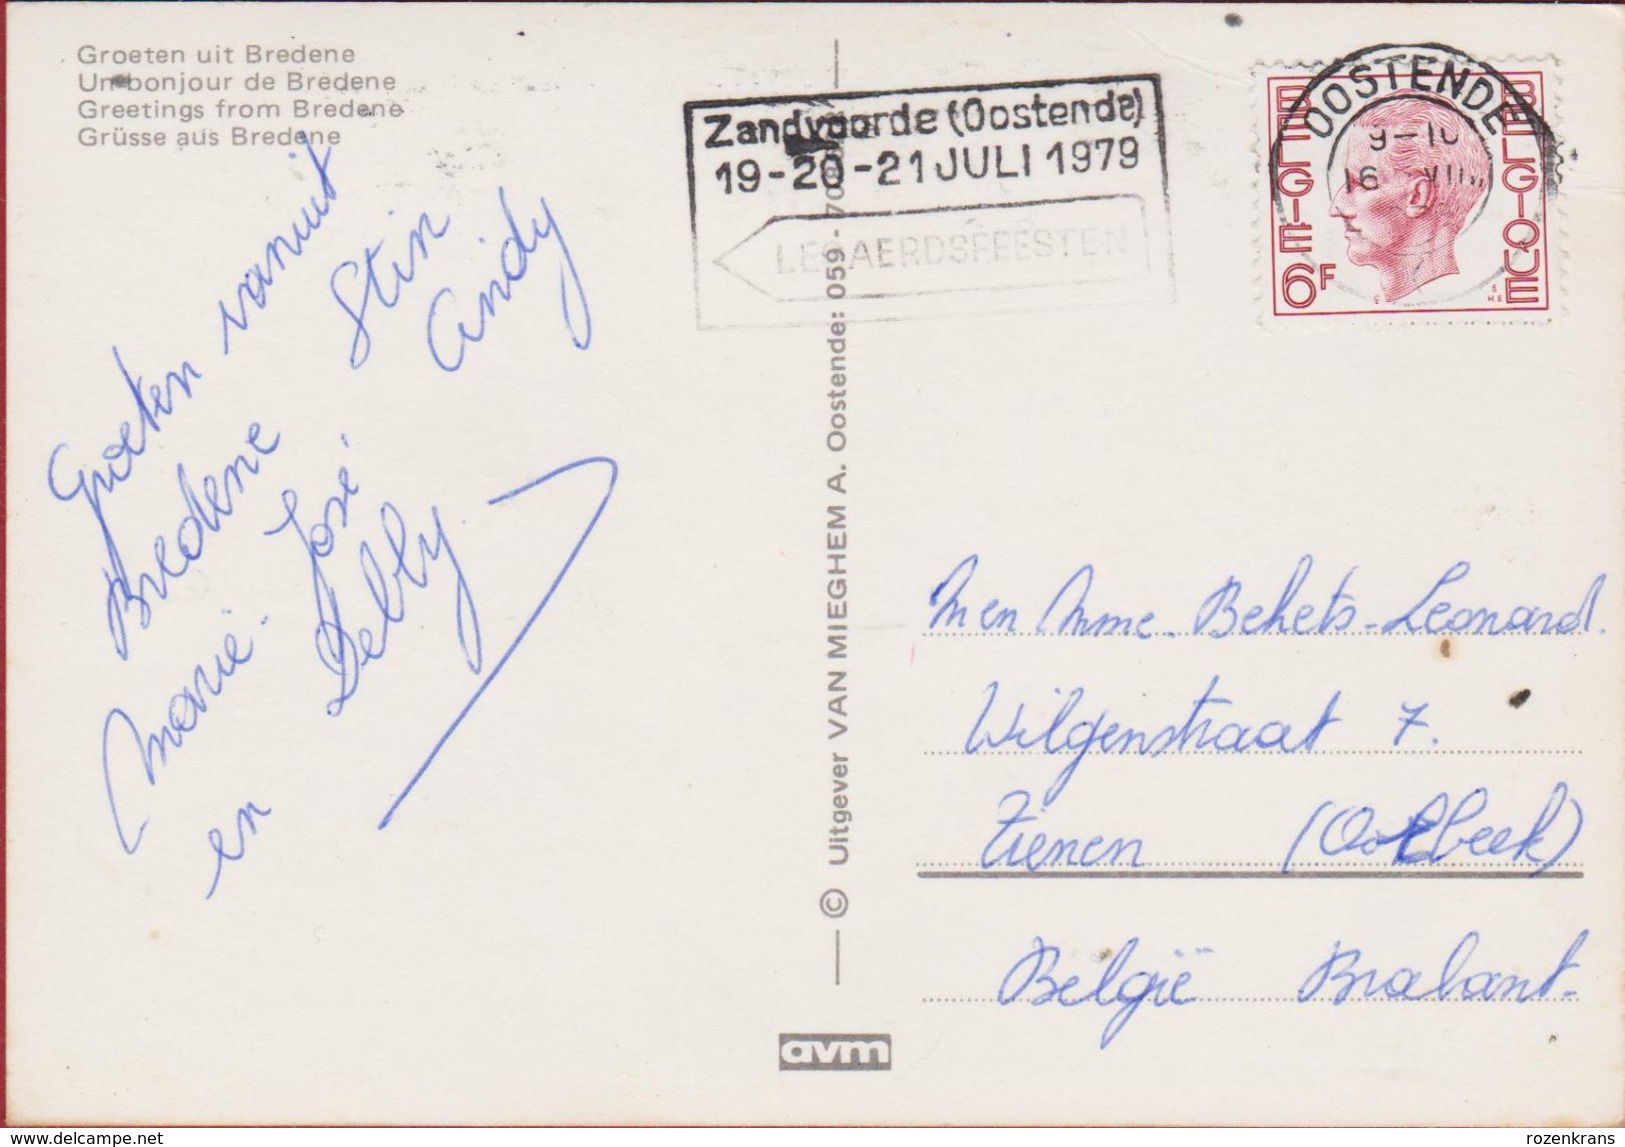 Groeten uit Bredene
Un bonjour de Bredene
Greetings from Bredene
Grüsse aus Bredene
Groeten vanuit
Bredene Stin
Marie-José Andy
en Delly
© Uitgever VAN MIEGHEM A. Oostende: 059-70
avm
Zandvoorde (Oostende)
19-20-21 JULI 1979
LEGAERDSFEESTEN
OOSTENDE
9-10
16 VII
BELGIE BELGIQUE
6F
M en Mme. Behets-Leonard.
Wilgenstraat 7.
Tienen (Oorbeek)
België Brabant.
www.delcampe.net
rozenkrans